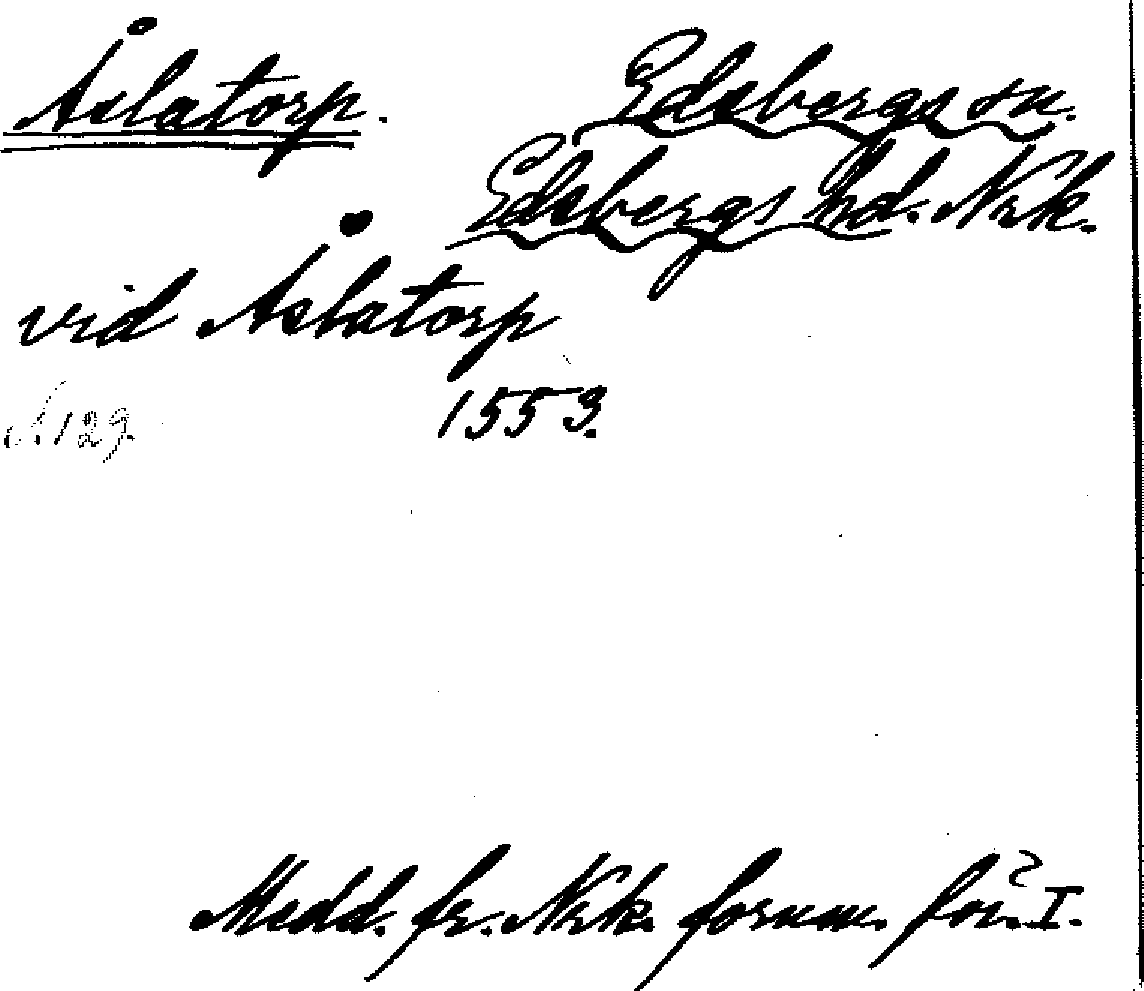 Åslatorp. Edsbergs sn.
Edsbergs hd. Nrk.
vid Åslatorp
1553.
s. 129.
Medd. fr. Nrk. fornm. för. I.